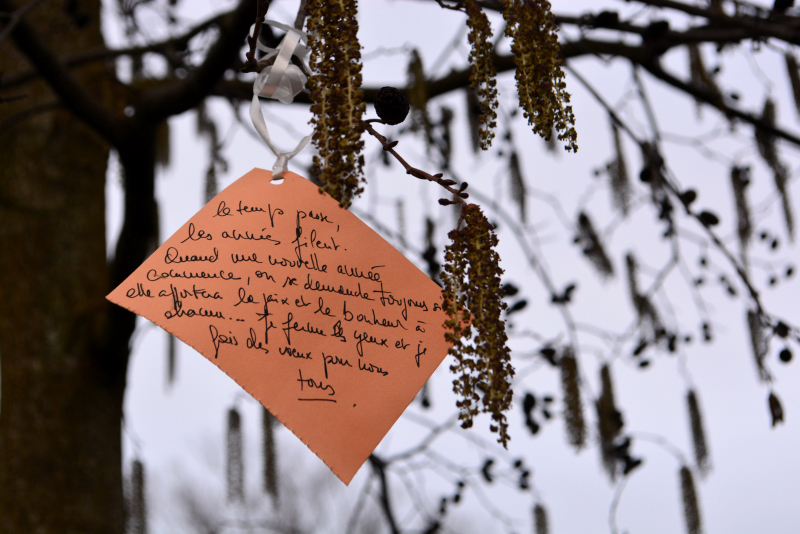 le temps passe,
les années filent.
Quand une nouvelle année
commence, on se demande toujours si
elle apportera la paix et le bonheur à
chacun... Je ferme les yeux et je
fais des vœux pour nous
tous.